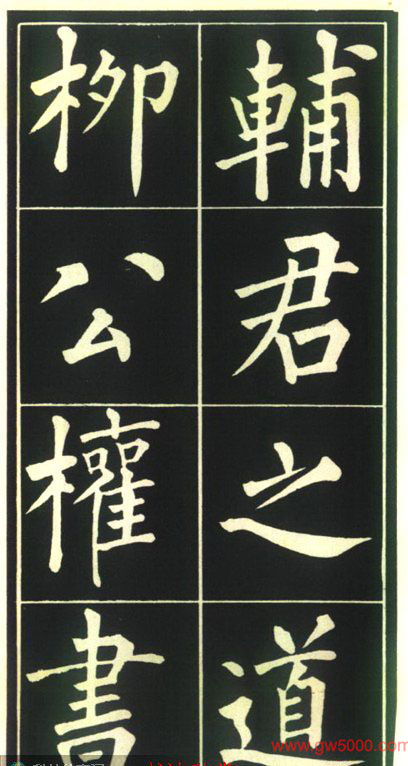 輔君之道
柳公權書
www.gw5000.com